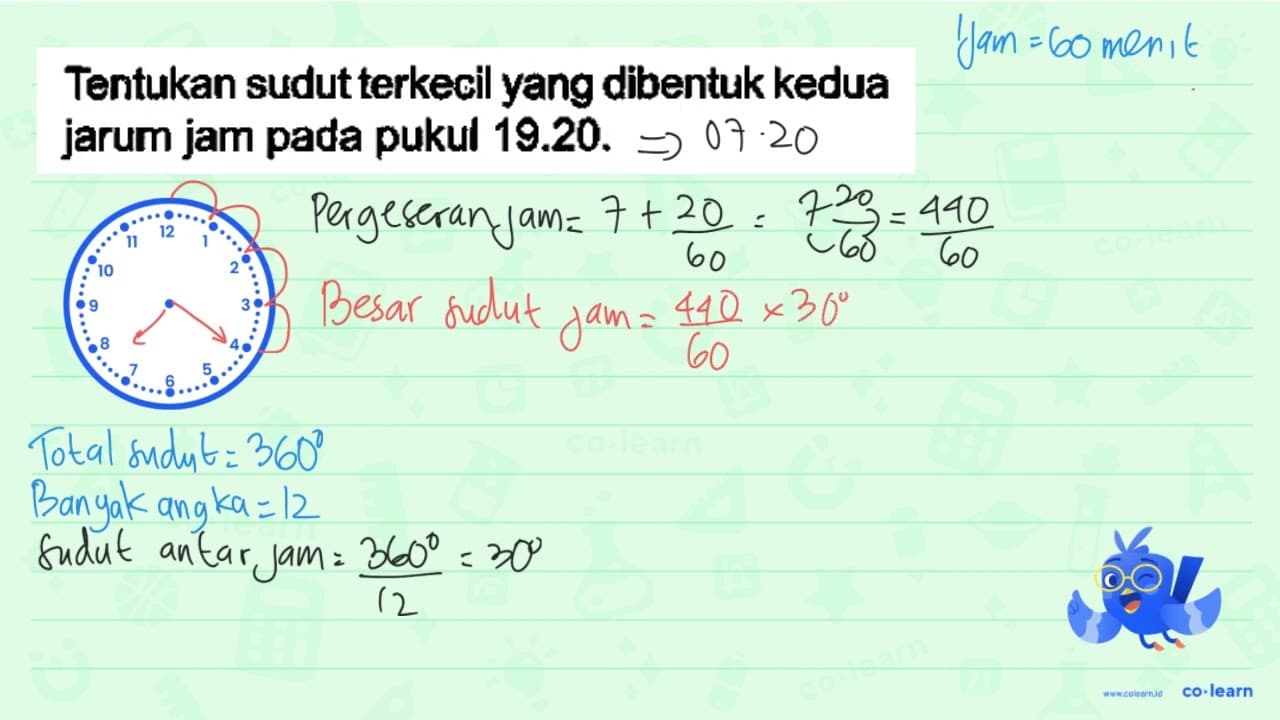 1 jam = 60 menit
Tentukan sudut terkecil yang dibentuk kedua
jarum jam pada pukul 19.20. ⇒ 07.20
Pergeseran jam = 7 + 20/60 = 7 20/60 = 440/60
Besar sudut jam = 440/60 × 30°
12
11 1
10 2
9 3
8 4
7 5
6
Total sudut = 360°
Banyak angka = 12
sudut antar jam = 360°/12 = 30°
co·learn
www.colearn.id co·learn